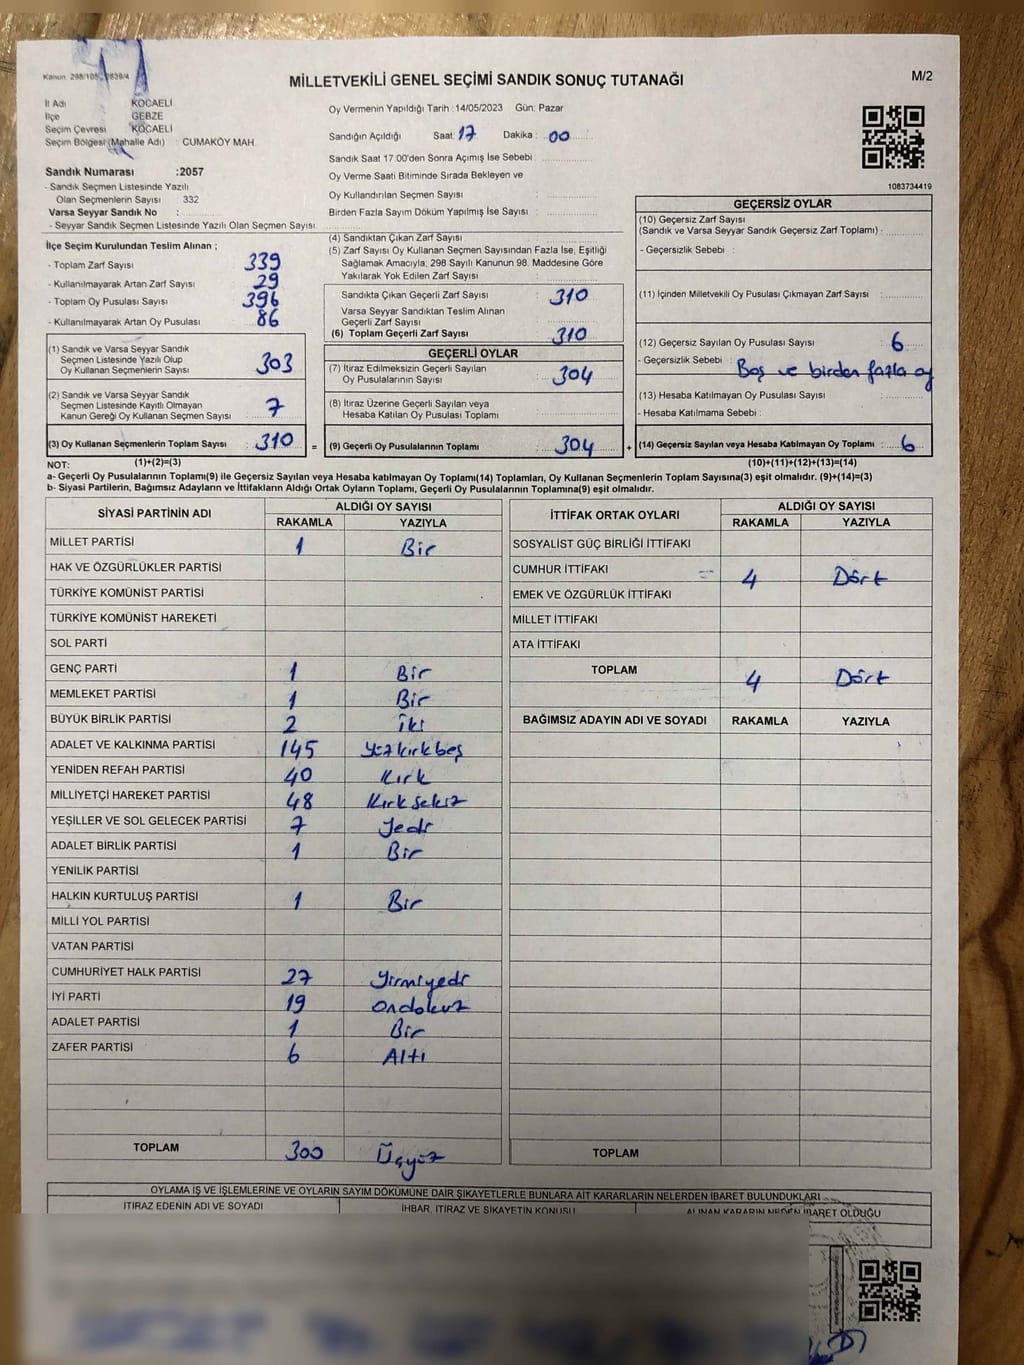 Kanun: 298/105, 2839/4
MİLLETVEKİLİ GENEL SEÇİMİ SANDIK SONUÇ TUTANAĞI
M/2
İl Adı : KOCAELİ
İlçe : GEBZE
Seçim Çevresi : KOCAELİ
Seçim Bölgesi (Mahalle Adı) : CUMAKÖY MAH.
Oy Vermenin Yapıldığı Tarih :14/05/2023 Gün: Pazar
Sandığın Açıldığı Saat: 17 Dakika : 00
Sandık Saat 17:00'den Sonra Açımış İse Sebebi :
Oy Verme Saati Bitiminde Sırada Bekleyen ve
Oy Kullandırılan Seçmen Sayısı :
Birden Fazla Sayım Döküm Yapılmış İse Sayısı :
1083734419
Sandık Numarası :2057
- Sandık Seçmen Listesinde Yazılı
Olan Seçmenlerin Sayısı 332
Varsa Seyyar Sandık No :
- Seyyar Sandık Seçmen Listesinde Yazılı Olan Seçmen Sayısı
İlçe Seçim Kurulundan Teslim Alınan ;
- Toplam Zarf Sayısı 339
- Kullanılmayarak Artan Zarf Sayısı 29
- Toplam Oy Pusulası Sayısı 396
- Kullanılmayarak Artan Oy Pusulası 86
(1) Sandık ve Varsa Seyyar Sandık
Seçmen Listesinde Yazılı Olup
Oy Kullanan Seçmenlerin Sayısı 303
(2) Sandık ve Varsa Seyyar Sandık
Seçmen Listesinde Kayıtlı Olmayan
Kanun Gereği Oy Kullanan Seçmen Sayısı 7
(3) Oy Kullanan Seçmenlerin Toplam Sayısı 310
(1)+(2)=(3)
(4) Sandıktan Çıkan Zarf Sayısı
(5) Zarf Sayısı Oy Kullanan Seçmen Sayısından Fazla İse, Eşitliği
Sağlamak Amacıyla, 298 Sayılı Kanunun 98. Maddesine Göre
Yakılarak Yok Edilen Zarf Sayısı :
Sandıkta Çıkan Geçerli Zarf Sayısı 310
Varsa Seyyar Sandıktan Teslim Alınan
Geçerli Zarf Sayısı
(6) Toplam Geçerli Zarf Sayısı 310
GEÇERLİ OYLAR
(7) İtiraz Edilmeksizin Geçerli Sayılan
Oy Pusulalarının Sayısı 304
(8) İtiraz Üzerine Geçerli Sayılan veya
Hesaba Katılan Oy Pusulası Toplamı
= (9) Geçerli Oy Pusulalarının Toplamı 304
GEÇERSİZ OYLAR
(10) Geçersiz Zarf Sayısı
(Sandık ve Varsa Seyyar Sandık Geçersiz Zarf Toplamı) :
- Geçersizlik Sebebi :
(11) İçinden Milletvekili Oy Pusulası Çıkmayan Zarf Sayısı :
(12) Geçersiz Sayılan Oy Pusulası Sayısı : 6
- Geçersizlik Sebebi : Boş ve birden fazla oy
(13) Hesaba Katılmayan Oy Pusulası Sayısı :
- Hesaba Katılmama Sebebi :
+ (14) Geçersiz Sayılan veya Hesaba Katılmayan Oy Toplamı : 6
(10)+(11)+(12)+(13)=(14)
NOT:
a- Geçerli Oy Pusulalarının Toplamı(9) ile Geçersiz Sayılan veya Hesaba katılmayan Oy Toplamı(14) Toplamları, Oy Kullanan Seçmenlerin Toplam Sayısına(3) eşit olmalıdır. (9)+(14)=(3)
b- Siyasi Partilerin, Bağımsız Adayların ve İttifakların Aldığı Ortak Oyların Toplamı, Geçerli Oy Pusulalarının Toplamına(9) eşit olmalıdır.
SİYASİ PARTİNİN ADI ALDIĞI OY SAYISI
RAKAMLA YAZIYLA
MİLLET PARTİSİ 1 Bir
HAK VE ÖZGÜRLÜKLER PARTİSİ
TÜRKİYE KOMÜNİST PARTİSİ
TÜRKİYE KOMÜNİST HAREKETİ
SOL PARTİ
GENÇ PARTİ 1 Bir
MEMLEKET PARTİSİ 1 Bir
BÜYÜK BİRLİK PARTİSİ 2 iki
ADALET VE KALKINMA PARTİSİ 145 yüzkırkbeş
YENİDEN REFAH PARTİSİ 40 Kırk
MİLLİYETÇİ HAREKET PARTİSİ 48 Kırksekiz
YEŞİLLER VE SOL GELECEK PARTİSİ 7 Yedi
ADALET BİRLİK PARTİSİ 1 Bir
YENİLİK PARTİSİ
HALKIN KURTULUŞ PARTİSİ 1 Bir
MİLLİ YOL PARTİSİ
VATAN PARTİSİ
CUMHURİYET HALK PARTİSİ 27 Yirmiyedi
İYİ PARTİ 19 ondokuz
ADALET PARTİSİ 1 Bir
ZAFER PARTİSİ 6 Altı
TOPLAM 300 Üçyüz
İTTİFAK ORTAK OYLARI ALDIĞI OY SAYISI
RAKAMLA YAZIYLA
SOSYALİST GÜÇ BİRLİĞİ İTTİFAKI
CUMHUR İTTİFAKI 4 Dört
EMEK VE ÖZGÜRLÜK İTTİFAKI
MİLLET İTTİFAKI
ATA İTTİFAKI
TOPLAM 4 Dört
BAĞIMSIZ ADAYIN ADI VE SOYADI RAKAMLA YAZIYLA
TOPLAM
OYLAMA İŞ VE İŞLEMLERİNE VE OYLARIN SAYIM DÖKÜMÜNE DAİR ŞİKAYETLERLE BUNLARA AİT KARARLARIN NELERDEN İBARET BULUNDUKLARI
İTİRAZ EDENİN ADI VE SOYADI İHBAR, İTİRAZ VE ŞİKAYETİN KONUSU ALINAN KARARIN NEDEN İBARET OLDUĞU